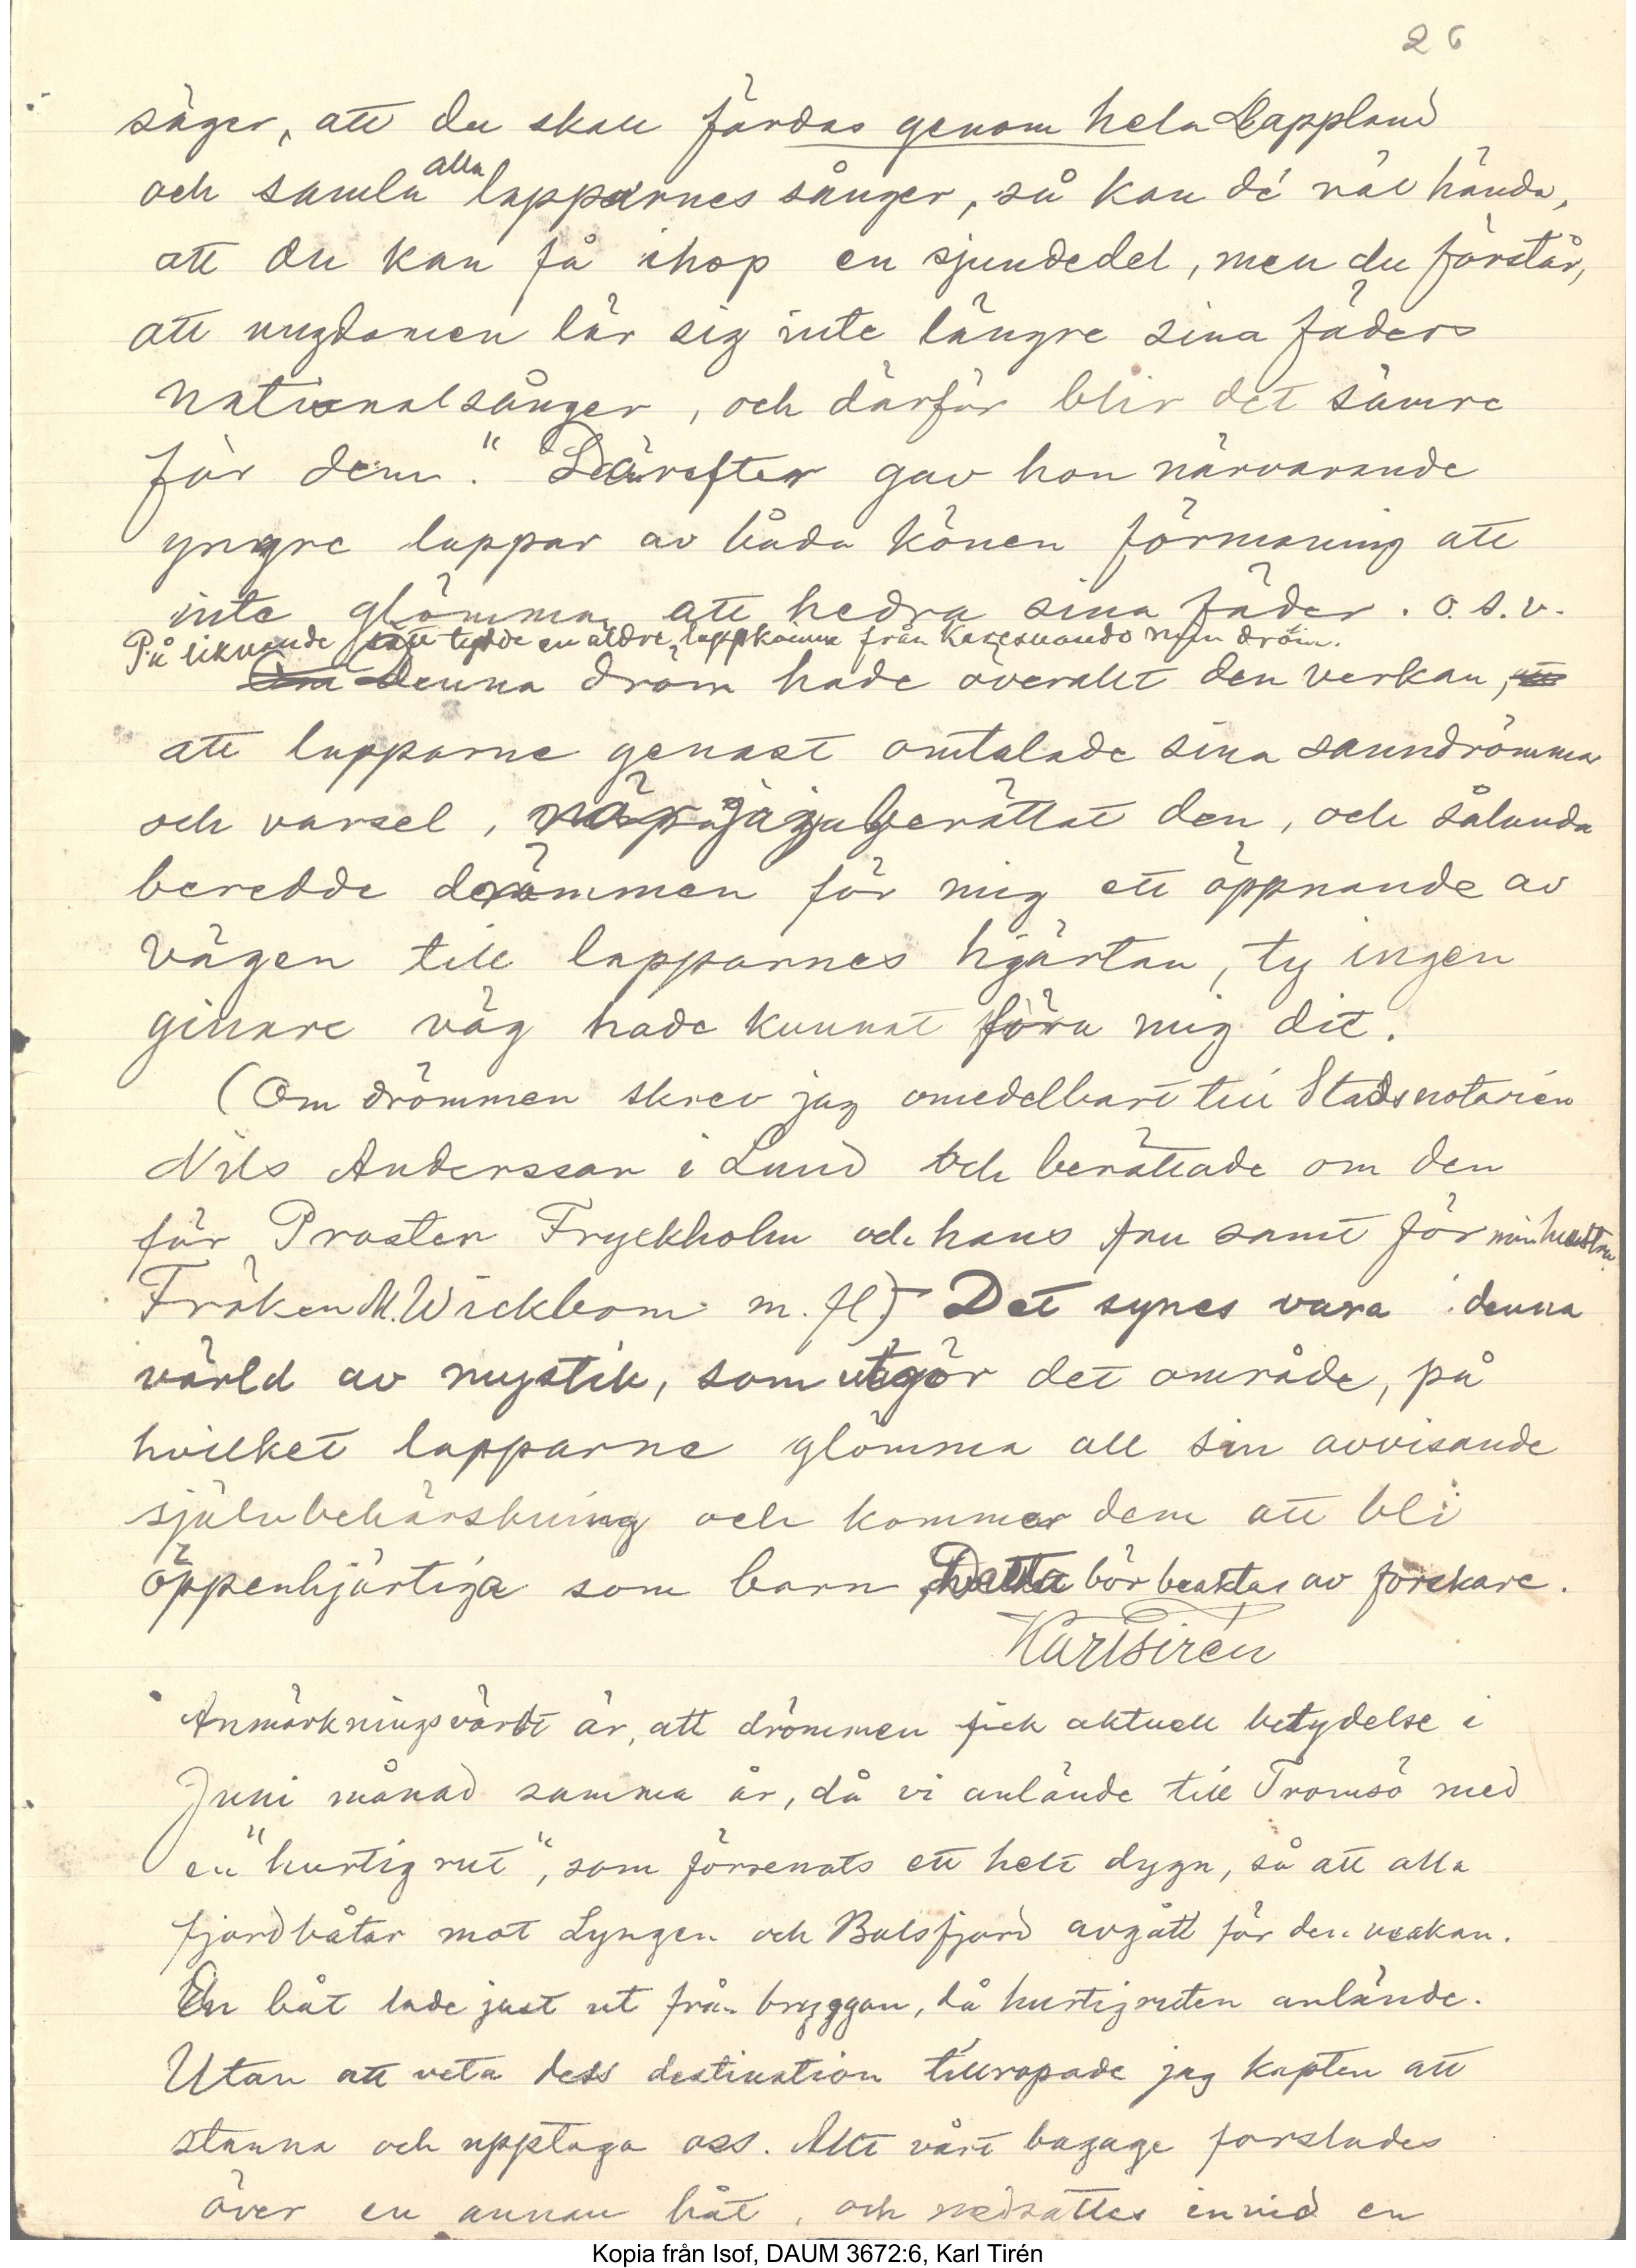 26
säger, att du skall färdas genom hela Lappland
och samla alla lapparnes sånger, så kan de' väl hända,
att du kan få ihop en sjundedel, men du förstår,
att ungdomen lär sig inte längre sina fäders
nationalsånger, och därför blir det sämre
för dem." Därefter gav hon närvarande
yngre lappar av båda könen förmaning att
inte glömma att hedra sina fäder. o.s.v.
På liknande sätt tydde en äldre lappkvinna från Karesuando min dröm.
Denna dröm hade överallt den verkan,
att lapparne genast omtalade sina sanndrömmar
och varsel, när jag berättat den, och sålunda
beredde drömmen för mig ett öppnande av
vägen till lapparnes hjärtan, ty ingen
ginare väg hade kunnat föra mig dit.
(Om drömmen skrev jag omedelbart till Stadsnotarien
Nils Andersson i Lund och berättade om den
för Prosten Fryckholm och hans fru samt för min hustru
Fröken M. Wickbom m. fl) Det synes vara denna
värld av mystik, som utgör det område, på
hvilket lapparne glömma all sin avvisande
självbehärskning och kommer dem att bli
öppenhjärtiga som barn, Detta bör beaktas av forskare.
Karl Tirén
Anmärkningsvärdt är, att drömmen fick aktuell betydelse i
Juni månad samma år, då vi anlände till Tromsö med
en "hurtigrut", som försenats ett helt dygn, så att alla
fjordbåtar mot Lyngen och Balsfjord avgått för den veckan.
En båt lade just ut från bryggan, då hurtigruten anlände.
Utan att veta dess destination tillropade jag kapten att
stanna och upptaga oss. Allt vårt bagage forslades
över en annan båt, och nedsattes invid en
Kopia från Isof, DAUM 3672:6, Karl Tirén